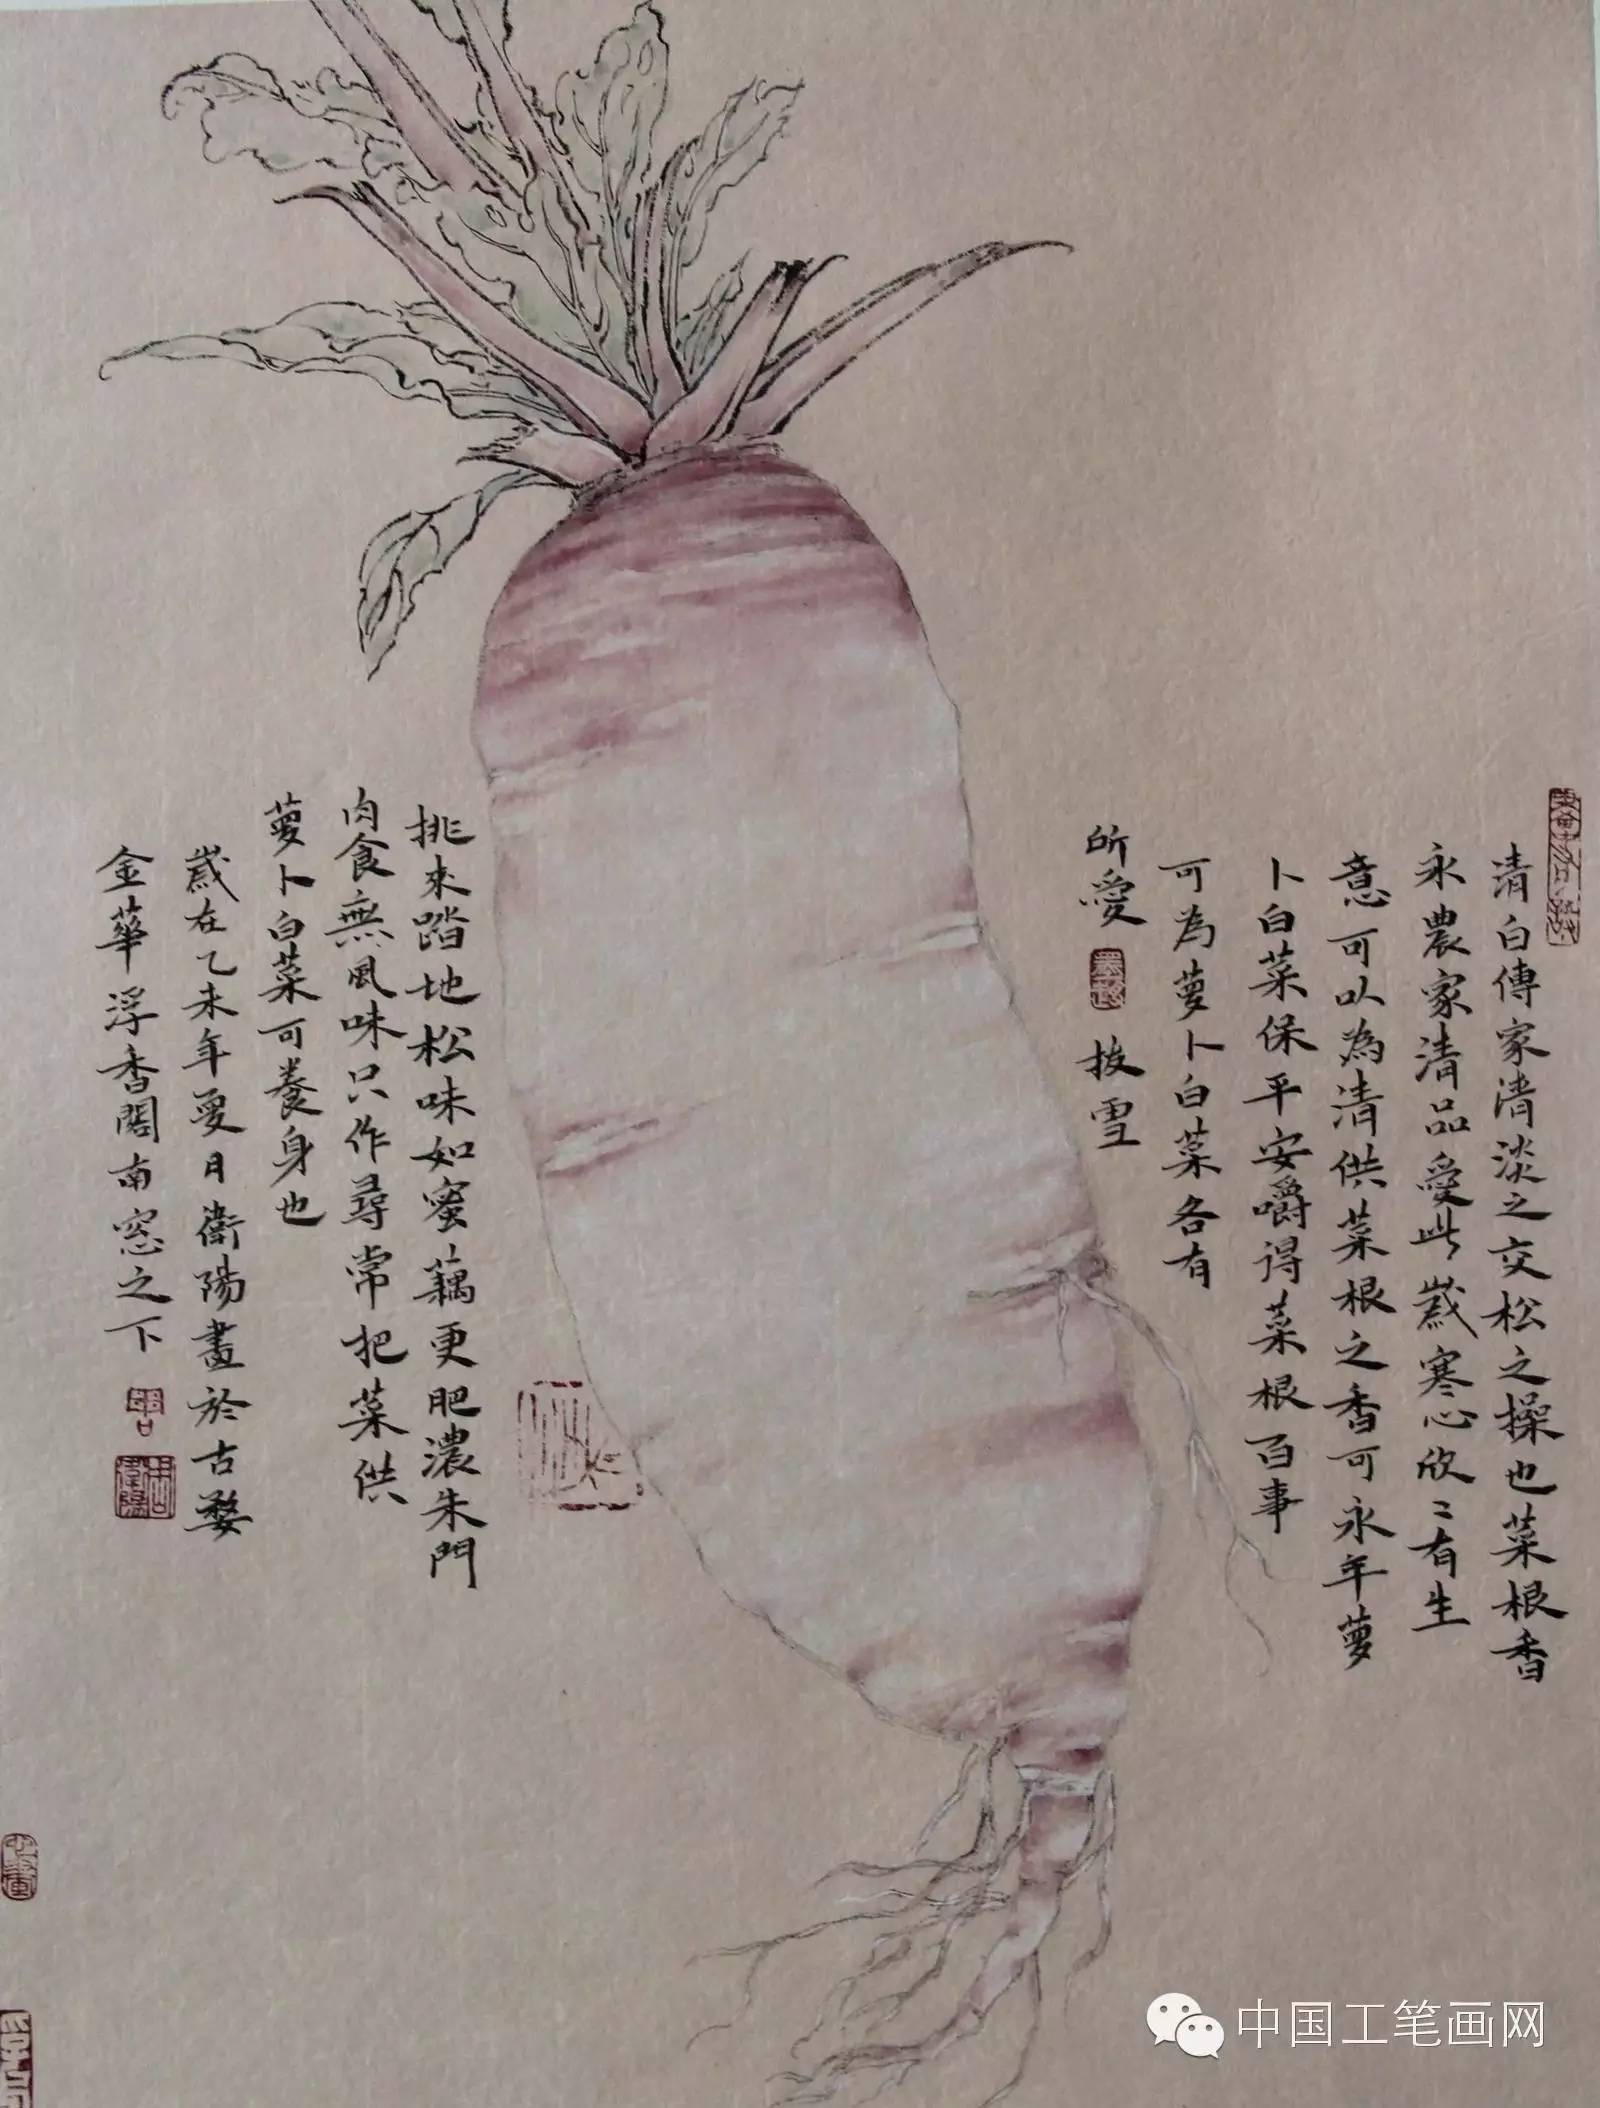 清白傳家清淡之交松之操也菜根香
永農家清品愛此歲寒心欣〻有生
意可以為清供菜根之香可永年萝
卜白菜保平安嚼得菜根百事
可為萝卜白菜各有
所愛
拔雪
挑來踏地松味如蜜藕更肥濃朱門
肉食無風味只作尋常把菜供
萝卜白菜可養身也
歲在乙未年夏月衛陽畫於古婺
金華浮香閣南窓之下
中国工笔画网